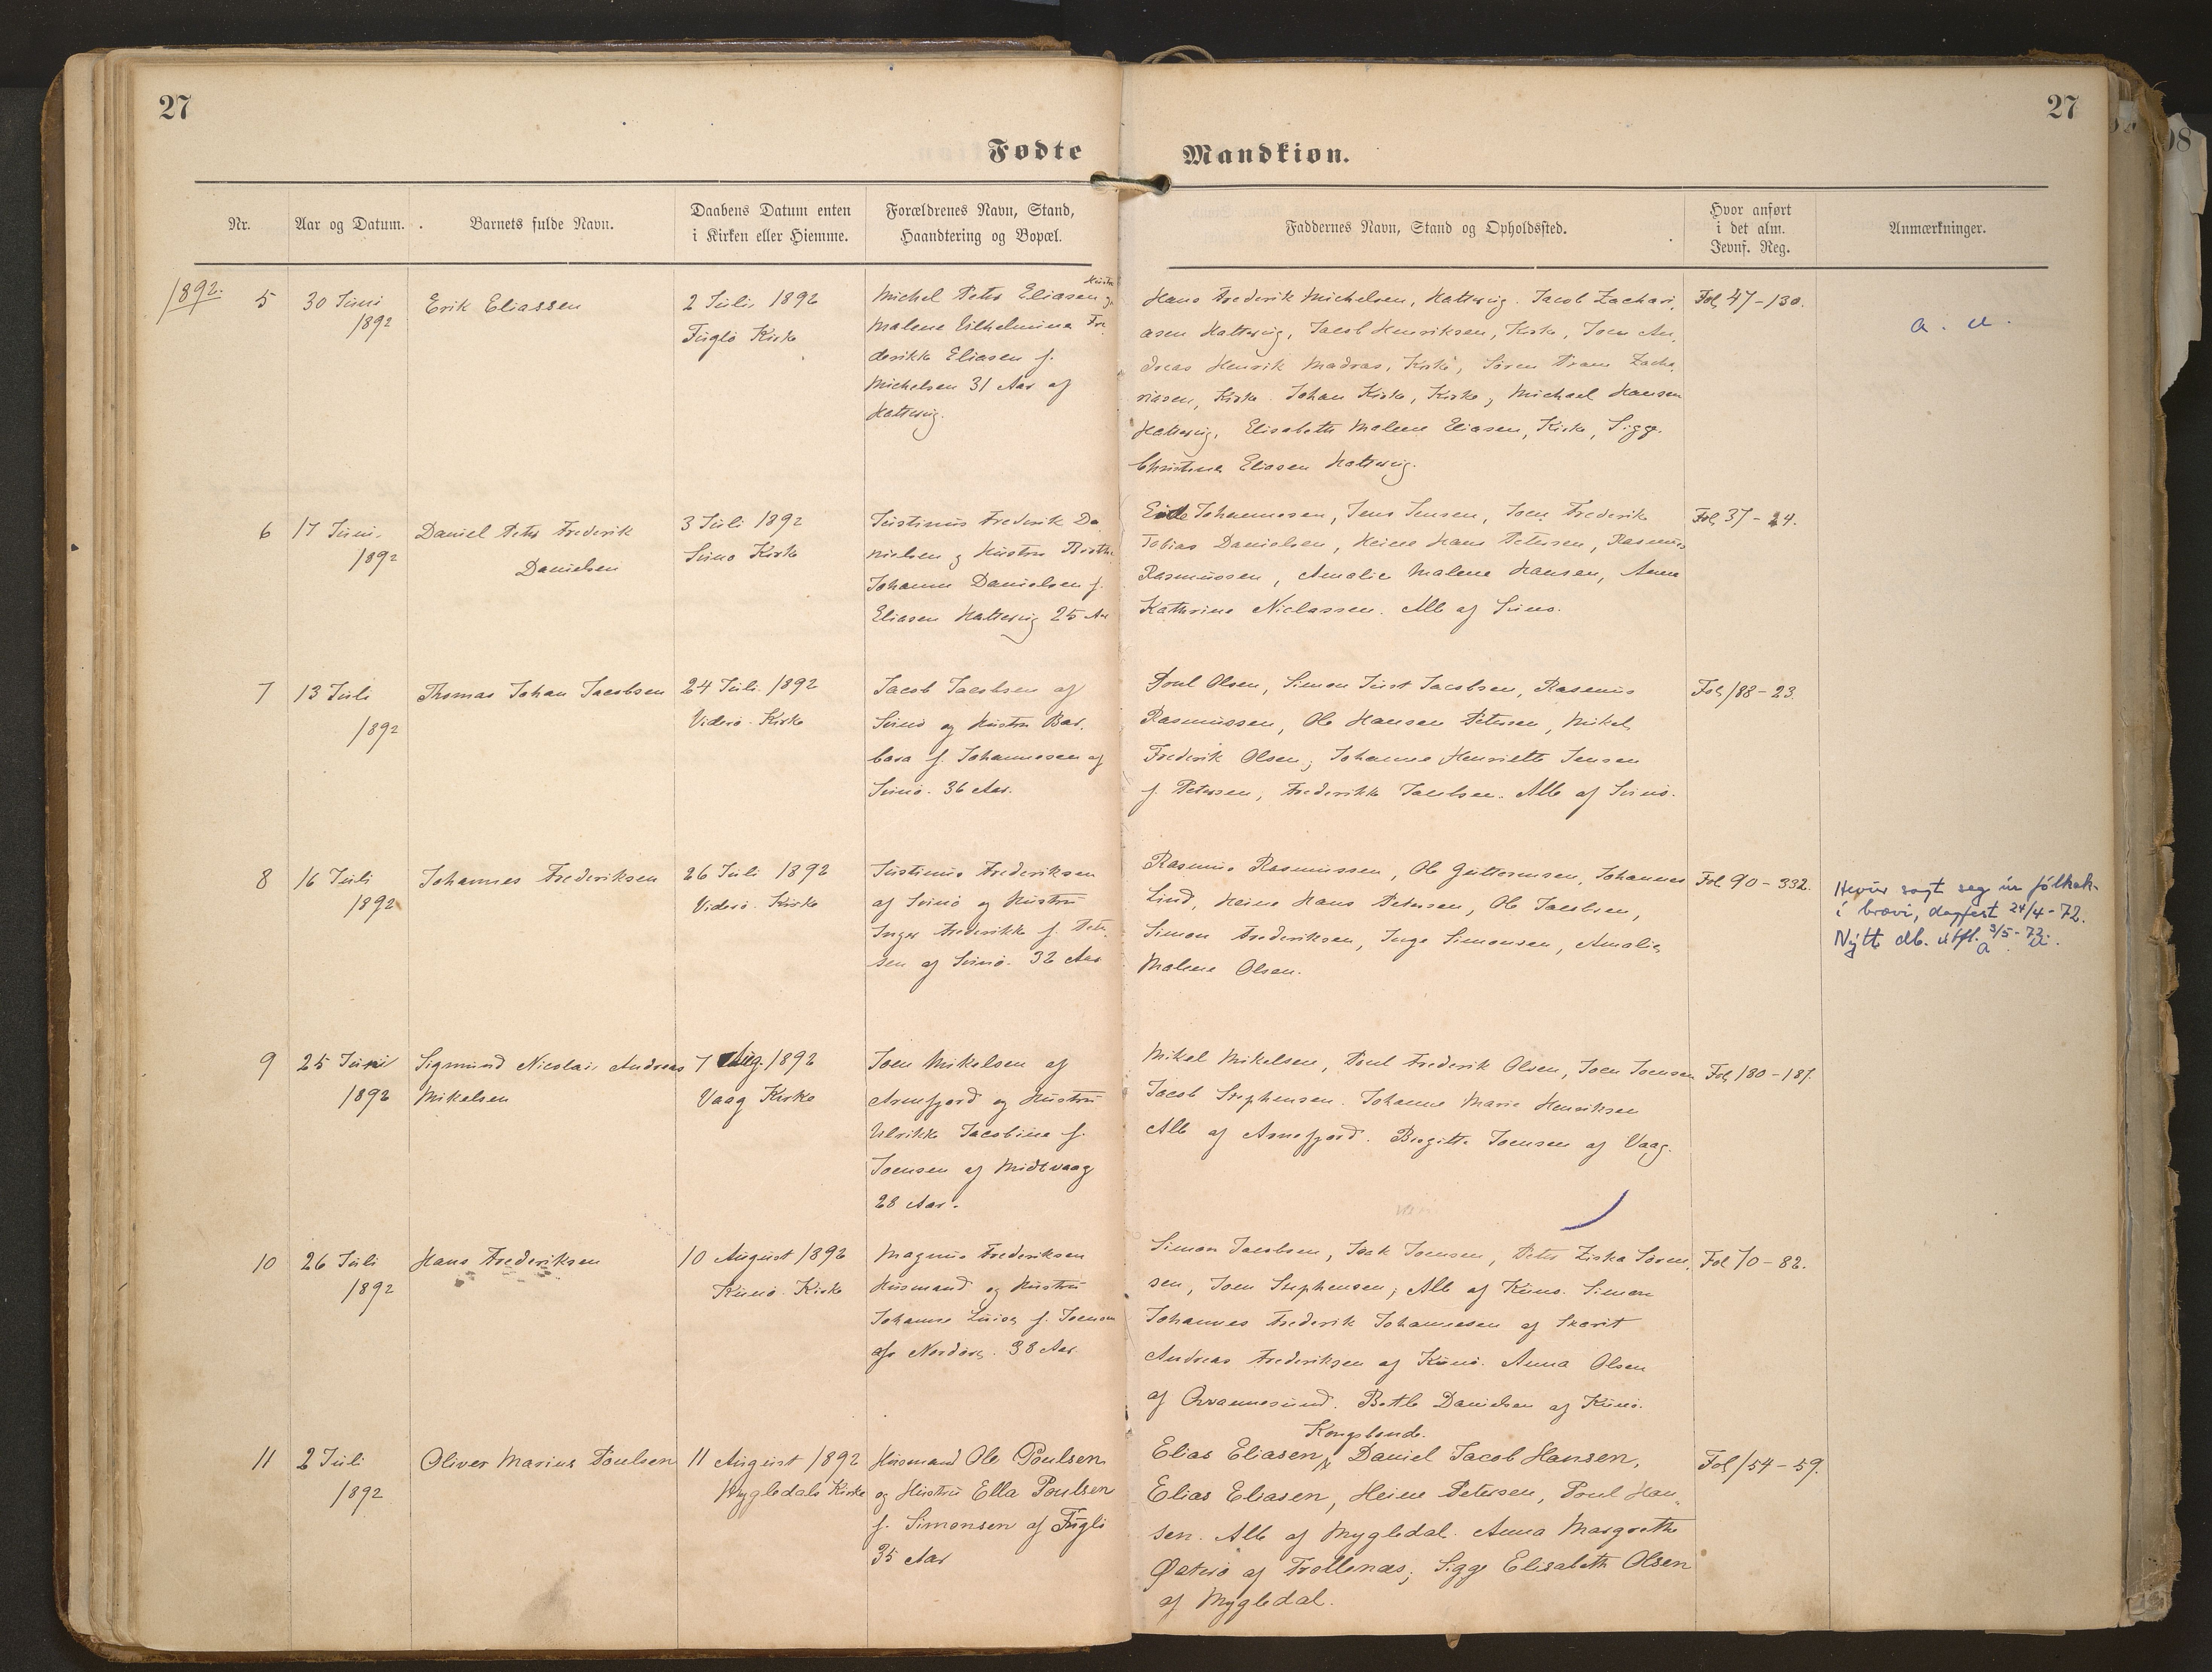 27
27
Fødte
Mandkiøn.
Nr.
Aar og Datum.
Barnets fulde Navn.
Daabens Datum enten
i Kirken eller Hiemme.
Forældrenes Navn, Stand,
Haandtering og Bopæl.
Faddernes Navn, Stand og Opholdssted.
Hvor anført
i det alm.
Jevnf. Reg.
Anmærkninger.
1892.
5
30 Juni
1892
Erik Eliassen
2 Juli, 1892
Fuglø Kirke
Michel Peter Eliasen
Malene Vilhelmina Fre
derikke Eliasen f.
Michelsen 31 Aar af
Hattervig.
Hans Frederik Michelsen, Hattervig. Jacob Zachari
asen Hattervig, Jacob Henriksen, Kirke, Joen An
dreas Henrik Madras, Kirke, Søren Pram Zacha
riasen, Kirke. Johan Kirke, Kirke, Michael Hansen
Hattervig, Elisabeth Malene Eliasen, Kirke, Sigge
Christina Eliasen Hattervig.
Fol, 47-130.
a. u.
6
17 Juni,
1892
Daniel Peter Frederik
Danielsen
3 Juli 1892
Svinø Kirke
Justinus Frederik Da
nielsen og Hustru Birthe
Johanne Danielsen f.
Eliasen Hattervig 25 Aar
Eide Johannesen, Jens Jensen, Joen Frederik
Tobias Danielsen, Heine Hans Petersen, Rasmus
Rasmussen, Amalie Malene Hansen, Anna
Kathrine Niclassen. Alle af Svinø.
Fol, 37-24.
7
13 Juli
1892
Thomas Johan Jacobsen
24 Juli 1892
Viderø Kirke
Jacob Jacobsen af
Svinø og Hustru Bar.
bara f. Johannesen af
Svinø. 36 Aar.
Poul Olsen, Simon Just Jacobsen, Rasmus
Rasmussen, Ole Hansen Petersen, Mikel
Frederik Olsen, Johanne Henriette Jensen
f. Petersen, Frederikke Jacobsen. Alle af Svinø.
Fol, 188-23.
8
16 Juli
1892
Johannes Frederiksen
26 Juli 1892
Viderø Kirke
Justinus Frederiksen
af Svinø og Hustru
Inger Frederikke f. Peter
sen af Svinø. 32 Aar
Rasmus Rasmussen, Ole Guttormsen, Johannes
Lind, Heine Hans Petersen, Ole Jacobsen,
Simon Frederiksen, Inge Simonsen, Amalie
Malene Olsen.
Fol 90-332.
Hevur sagt seg úr fólkak.
í brævi, dagfest 24/4-72.
Nýtt db. útfl. 3/5-72.
a. u.
9
25 Juni
1892
Sigmund Nicolai Andreas
Mikelsen
7 Aug. 1892
Vaag Kirke
Joen Mikelsen af
Arnefjord og Hustru
Ulrikke Jacobine f.
Joensen af Midtvaag
28 Aar.
Mikel Mikelsen, Poul Frederik Olsen, Joen Joensen
Jacob Stephensen. Johanne Marie Henriksen
Alle af Arnefjord. Birgitte Joensen af Vaag.
Fol, 180-187.
10
26 Juli
1892
Hans Frederiksen
10 August 1892
Kunø Kirke
Magnus Frederiksen
Husmand og Hustru
Johanne Luisa f. Joensen
af Nordøre. 38 Aar.
Simon Jacobsen, Isak Joensen, Peter Ziska Søren,
sen, Joen Stephensen, Alle af Kunø. Simon
Johannes Frederik Johannesen af Skarit
Andreas Frederiksen af Kunø. Anna Olsen
af Qvannesund. Botle Danielsen af Kunø.
Fol 70-82.
11
2 Juli
1892
Oliver Marius Poulsen
11 August 1892
Mygledals Kirke
Husmand Ole Poulsen
og Hustru Ella Poulsen
f. Simonsen af Fuglø
35 Aar
Kongsbonde.
Elias Eliasen, Daniel Jacob Hansen,
Elias Eliasen, Heine Petersen, Poul Han
sen. Alle af Mygledal. Anna Margrethe
Østerø af Trollenæs, Sigge Elisabeth Olsen
af Mygledal.
Fol 154-59.